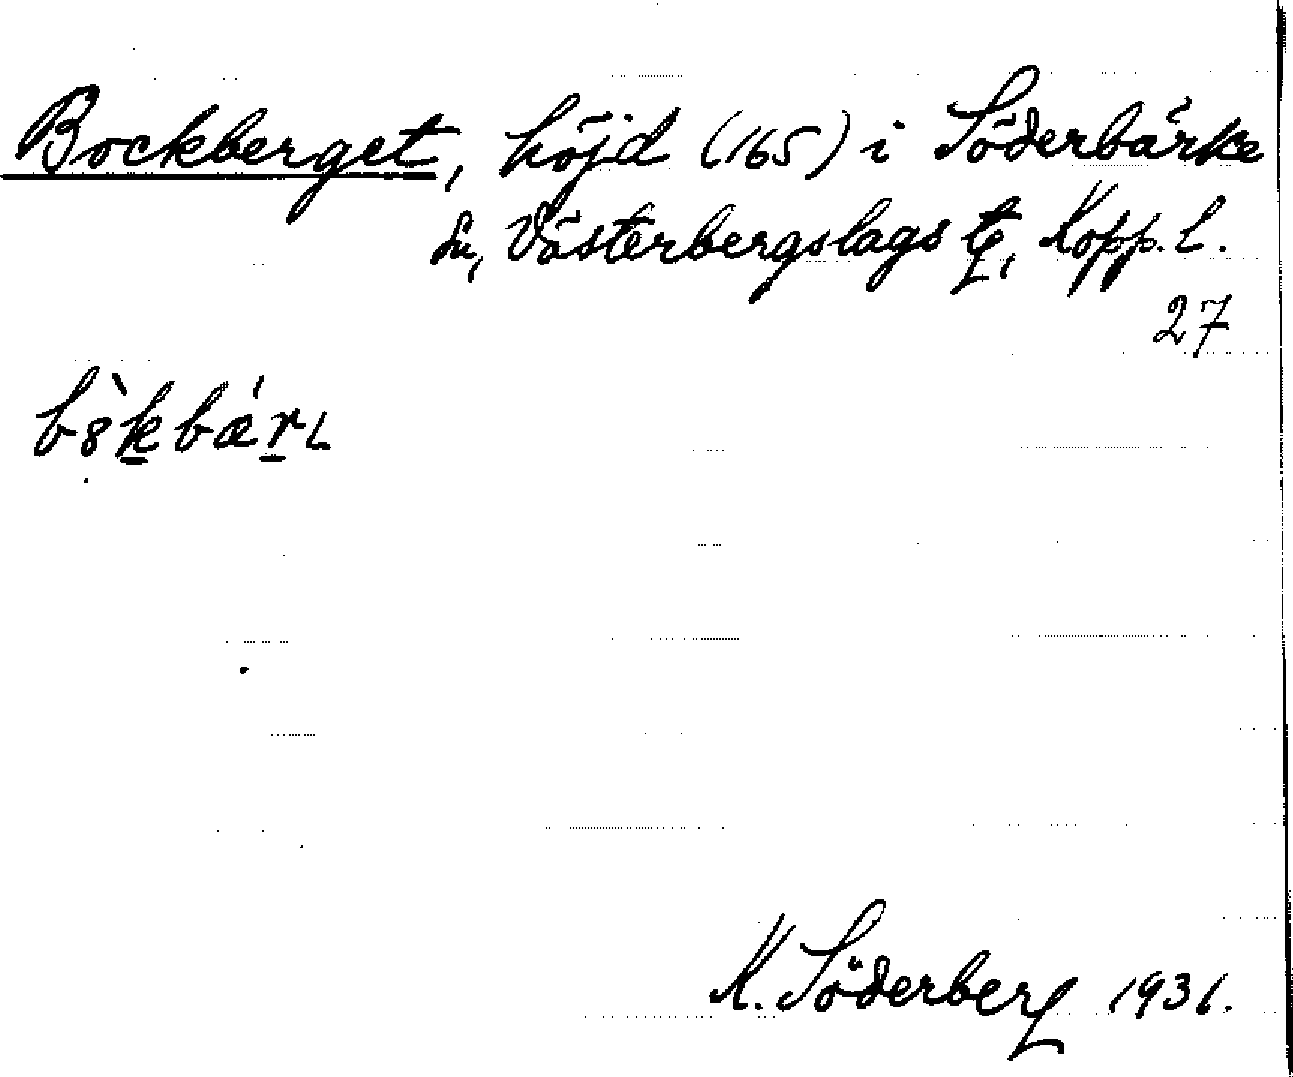 Bockberget, höjd (165) i Söderbärke
sn, Västerbergslags tg, Kopp. l.
27
b8̀k̲bǽr̲ɩ
K. Söderberg 1931.